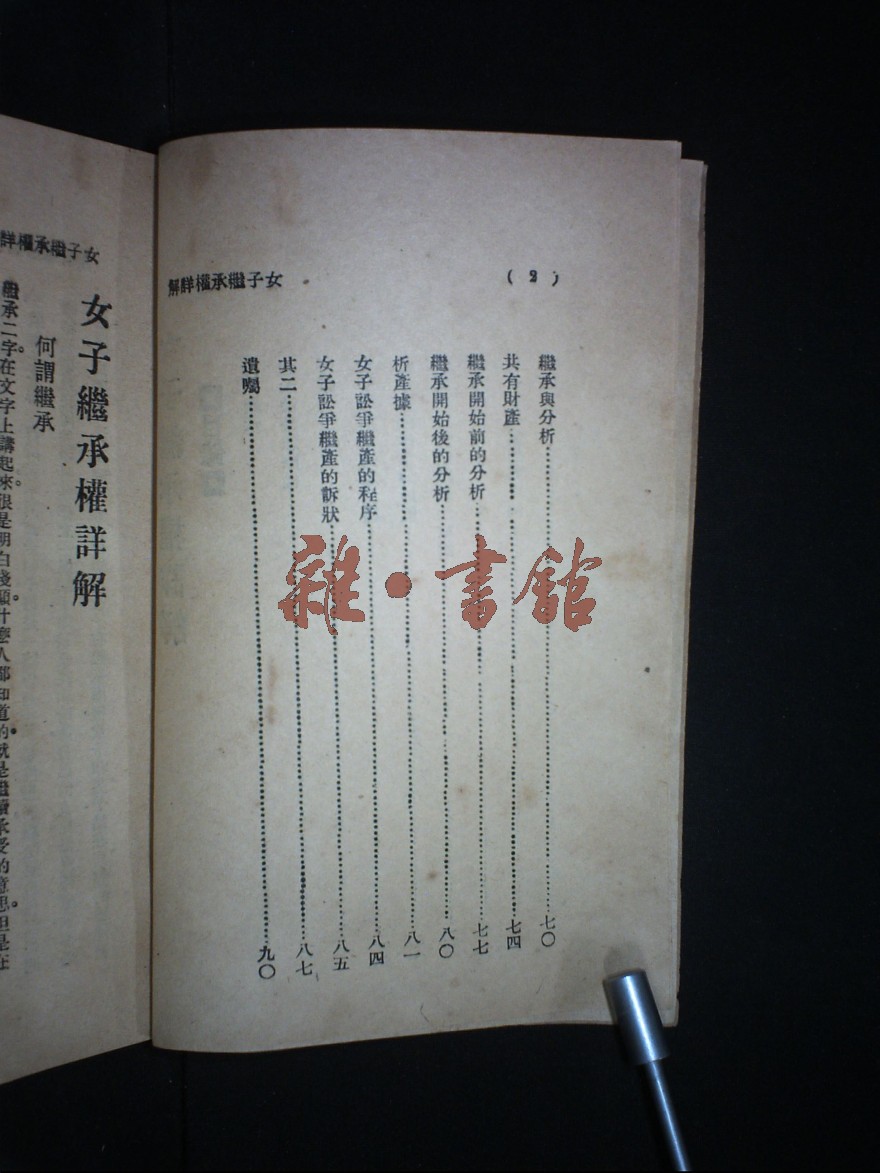 (2)
女子繼承權詳解
繼承與分析……七〇
共有財產……七四
繼承開始前的分析……七七
繼承開始後的分析……八〇
析產據……八一
女子訟爭繼產的程序……八四
女子訟爭繼產的訴狀……八五
其二……八七
遺囑……九〇
雜·書館
女子繼承權詳
女子繼承權詳解
何謂繼承
繼承二字。在文字上講起來。很是明白淺顯。什麼人都知道的。就是繼續承受的意思。但是在